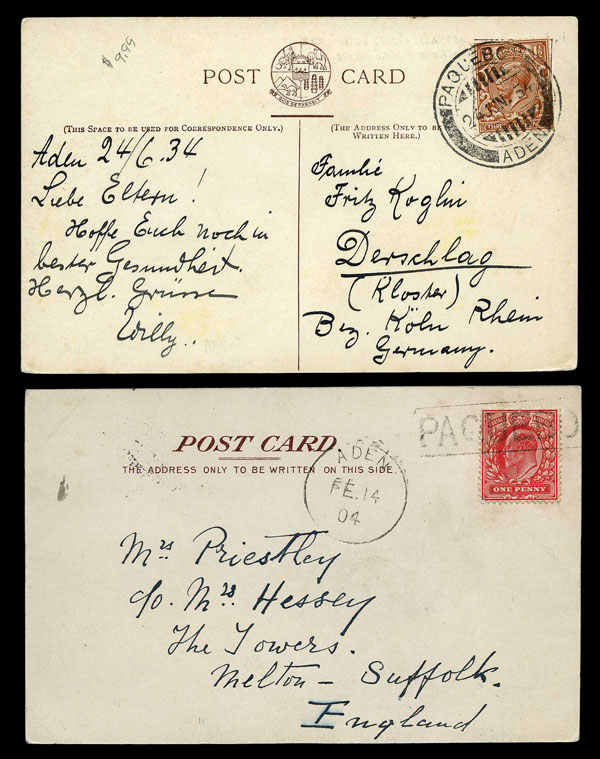 $9.95
POST CARD
(THIS SPACE TO BE USED FOR CORRESPONDENCE ONLY.)
Aden 24/6.34
Liebe Eltern!
Hoffe Euch noch in
bester Gesundheit.
Herzl. Grüsse
Willy..
(THE ADDRESS ONLY TO BE
WRITTEN HERE.)
PAQUEBO
ADEN
Familie
Fritz Koglin
Derschlag
(Kloster)
Bez. Köln Rhein
Germany.
POST CARD
THE ADDRESS ONLY TO BE WRITTEN ON THIS SIDE.
ADEN
FE.14
04
ONE PENNY
Mrs Priestley
c/o. Mrs. Hessey
The Towers.
Melton - Suffolk.
England